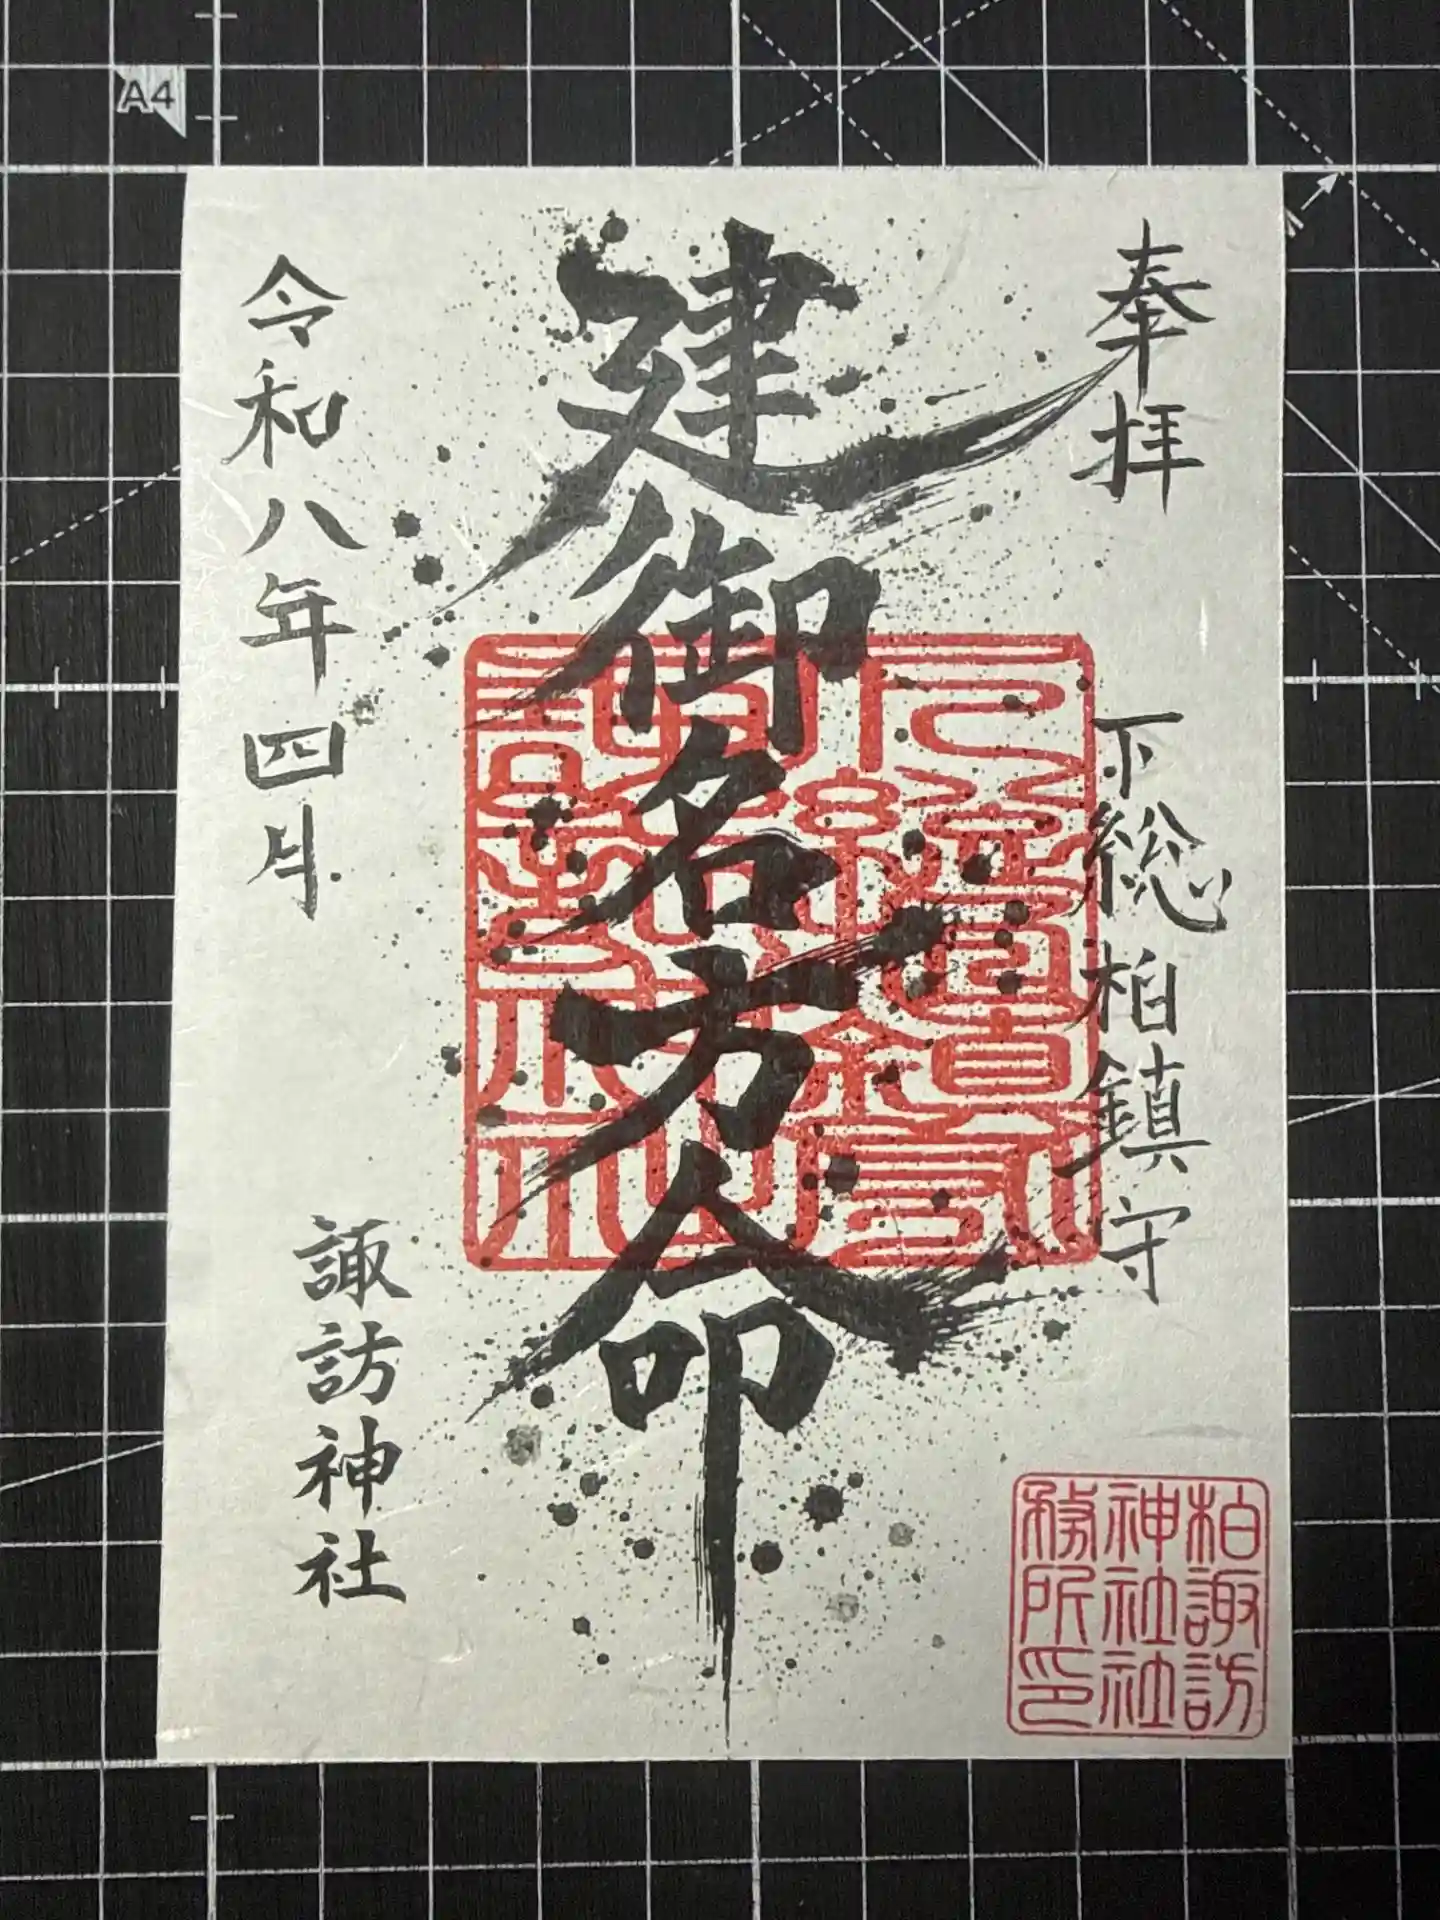 A4
奉拝
下総柏鎮守
建御名方命
令和八年四月
諏訪神社
柏諏訪
神社社
務所印